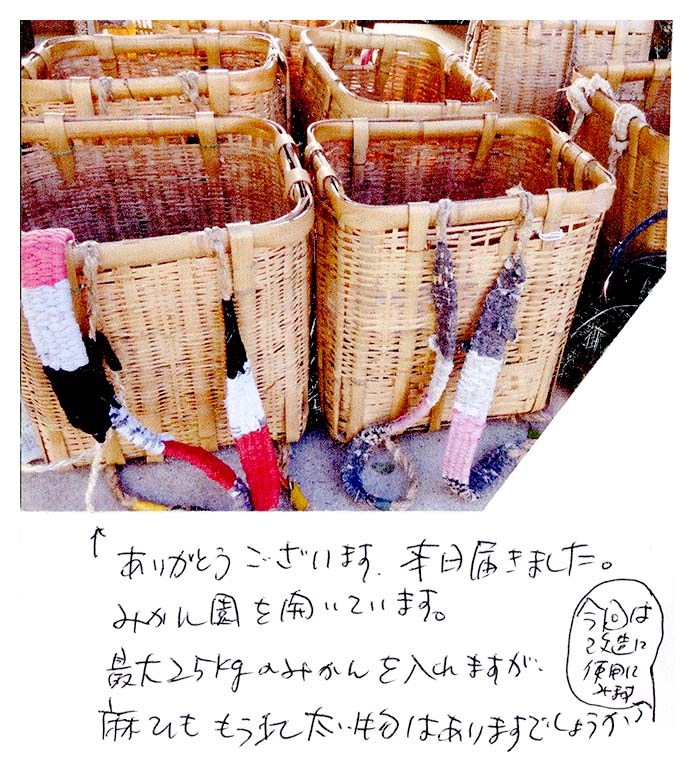 ↑
ありがとうございます、本日届きました。
みかん園を開いています。
最大25kgのみかんを入れますが、
麻ひももう少し太い物はありますでしょうか?
今回は
改造に
使用に